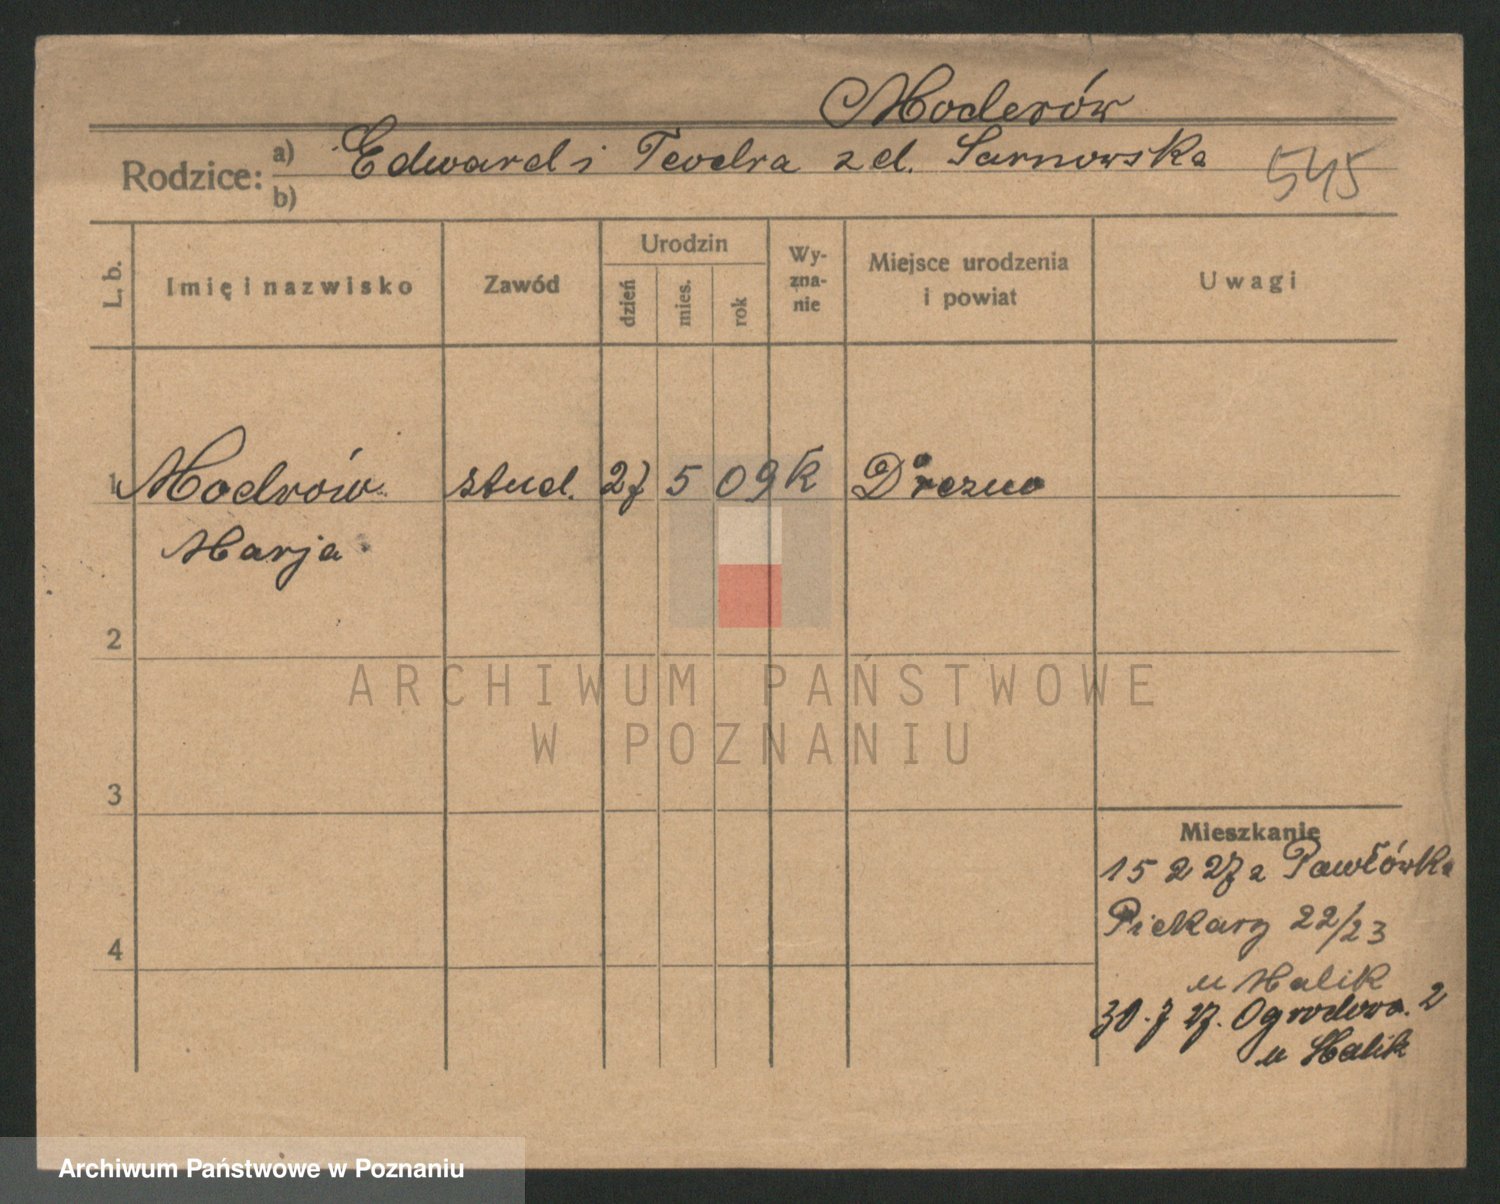 Moderów
Rodzice: a) Edward i Teodra z d. Sarnowska
b)
545
L. b.
Imię i nazwisko
Zawód
Urodzin
dzień
mies.
rok
Wy-
zna-
nie
Miejsce urodzenia
i powiat
Uwagi
1 Modrów stud. 27 5 09 k Drezno
Marja
2
3
4
Mieszkanie
15 2 27 z Pawłówka
Piekary 22/23
u Halik
30.7 27. Ogrodowa. 2
u Halik
ARCHIWUM PAŃSTWOWE
W POZNANIU
Archiwum Państwowe w Poznaniu